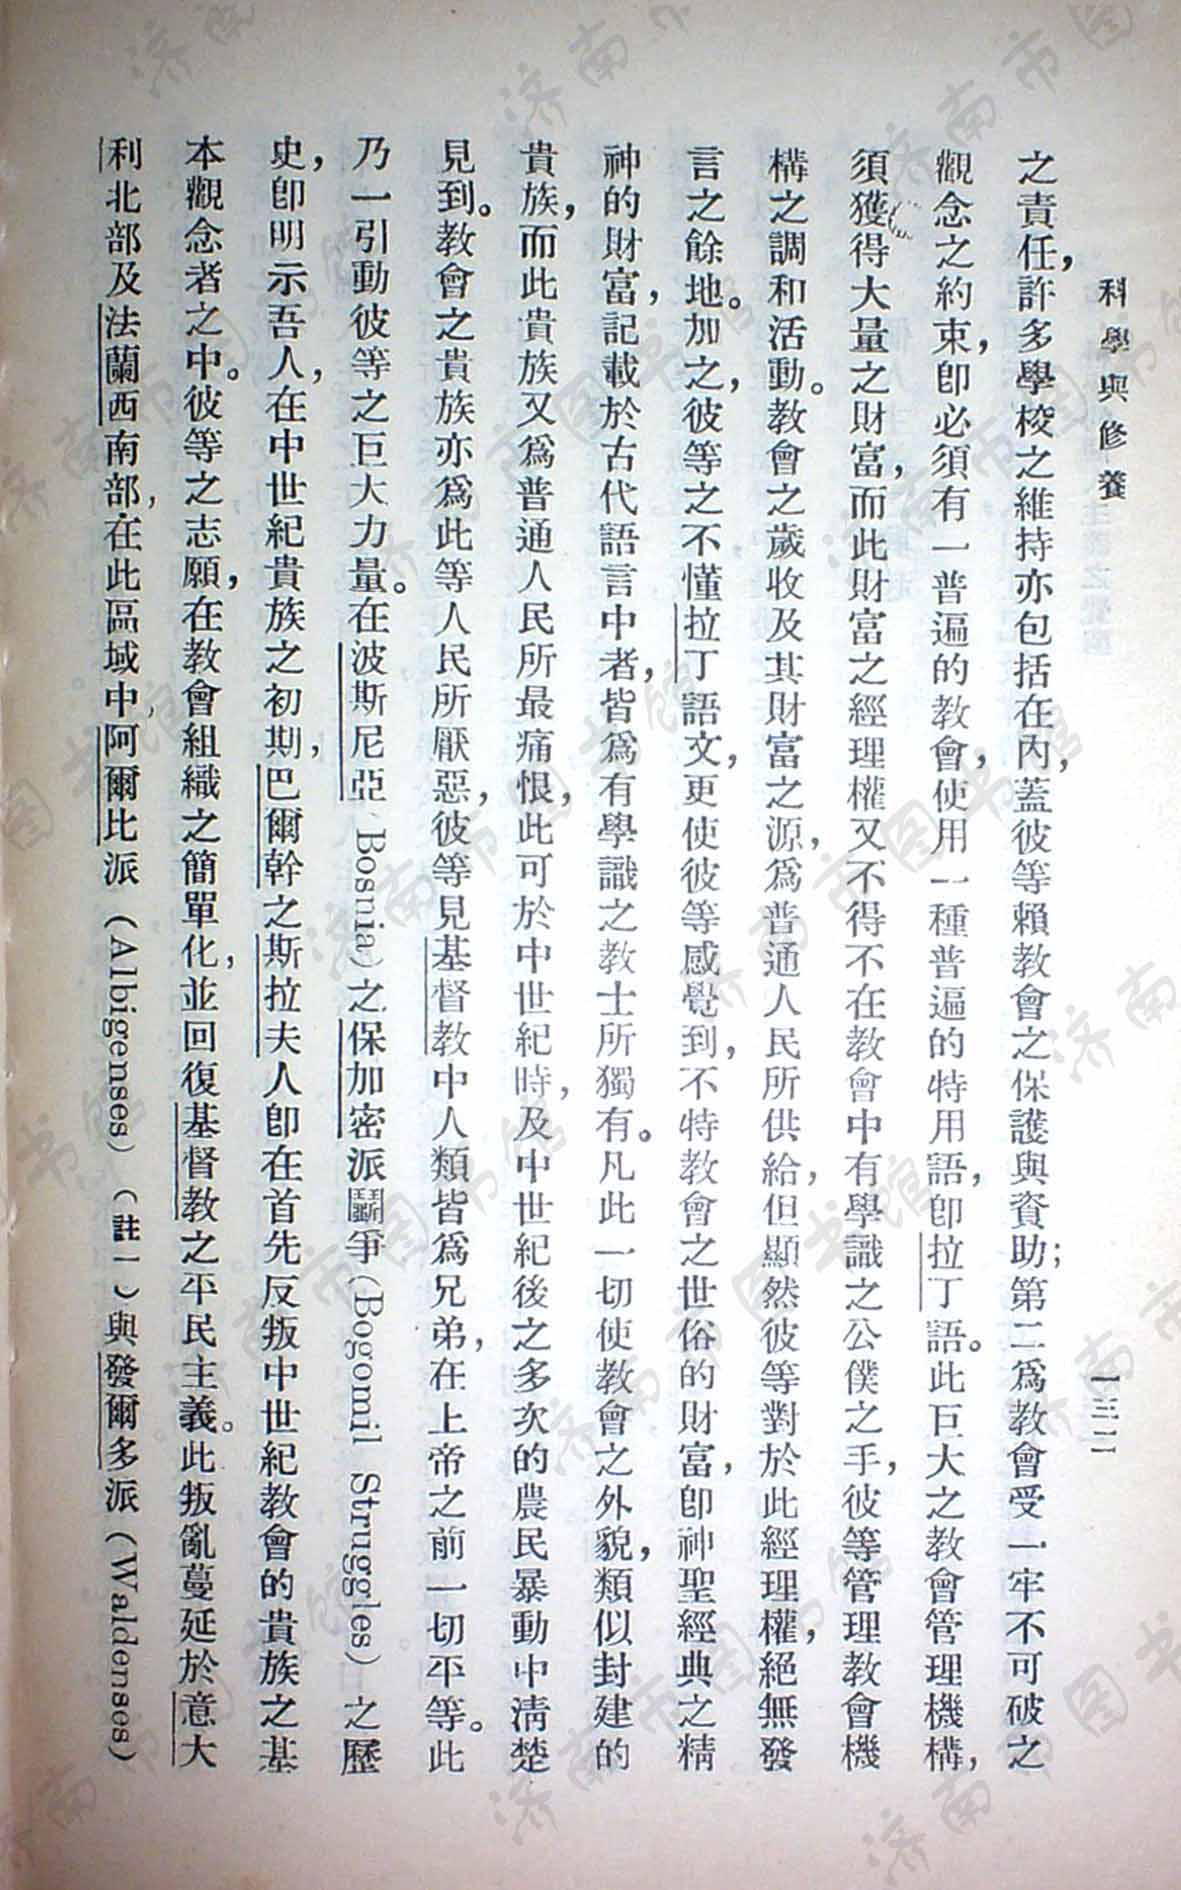 科學與修養
一三二
之責任，許多學校之維持亦包括在內，蓋彼等賴教會之保護與資助；第二爲教會受一牢不可破之
觀念之約束，卽必須有一普遍的教會，使用一種普遍的特用語，卽拉丁語。此巨大之教會管理機構，
須獲得大量之財富，而此財富之經理權又不得不在教會中有學識之公僕之手，彼等管理教會機
構之調和活動。教會之歲收及其財富之源，爲普通人民所供給，但顯然彼等對於此經理權，絕無發
言之餘地。加之，彼等之不懂拉丁語文，更使彼等感覺到，不特教會之世俗的財富，卽神聖經典之精
神的財富，記載於古代語言中者，皆爲有學識之教士所獨有。凡此一切使教會之外貌，類似封建的
貴族，而此貴族又爲普通人民所最痛恨，此可於中世紀時，及中世紀後之多次的農民暴動中淸楚
見到。教會之貴族亦爲此等人民所厭惡，彼等見基督教中人類皆爲兄弟，在上帝之前一切平等。此
乃一引動彼等之巨大力量。在波斯尼亞（Bosnia）之保加密派鬭爭（Bogomil Struggles）之歷
史，卽明示吾人，在中世紀貴族之初期，巴爾幹之斯拉夫人卽在首先反叛中世紀教會的貴族之基
本觀念者之中。彼等之志願，在教會組織之簡單化，並回復基督教之平民主義。此叛亂蔓延於意大
利北部及法蘭西南部，在此區域中，阿爾比派（Albigenses）（註一）與發爾多派（Waldenses）
济南市图书馆